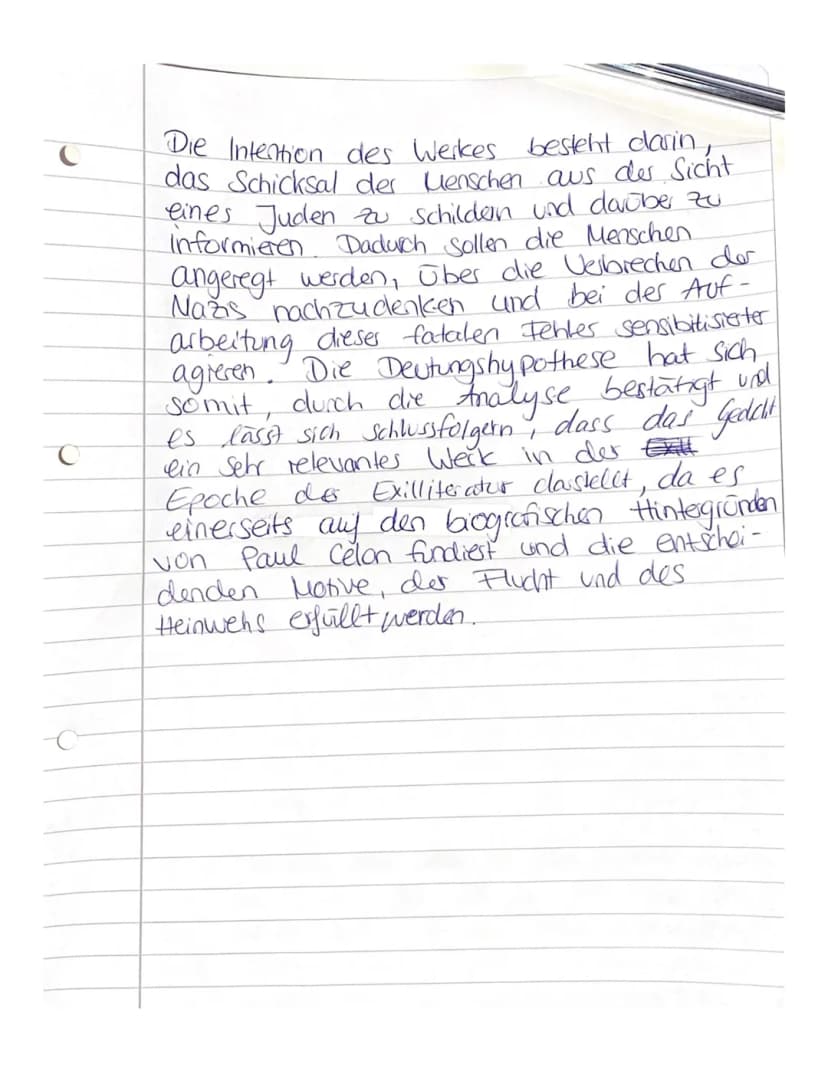 Die Intention des Werkes besteht darin,
das Schicksal der Menschen aus der Sicht
eines Juden zu schildern und darüber zu
informieren. Dadurch sollen die Menschen
angeregt werden, über die Verbrechen der
Nazis nachzudenken und bei der Auf-
arbeitung dieser fatalen Fehler sensibilisierter
agieren. Die Deutungshypothese hat sich
somit, durch die Analyse bestätigt und
es lässt sich schlussfolgern, dass das Gedicht
ein sehr relevantes Werk in der Exil
Epoche der Exilliteratur darstellt, da es
einerseits auf den biografischen Hintergründen
von Paul Celan fundiert und die entschei-
denden Motive, der Flucht und des
Heimwehs erfüllt werden.